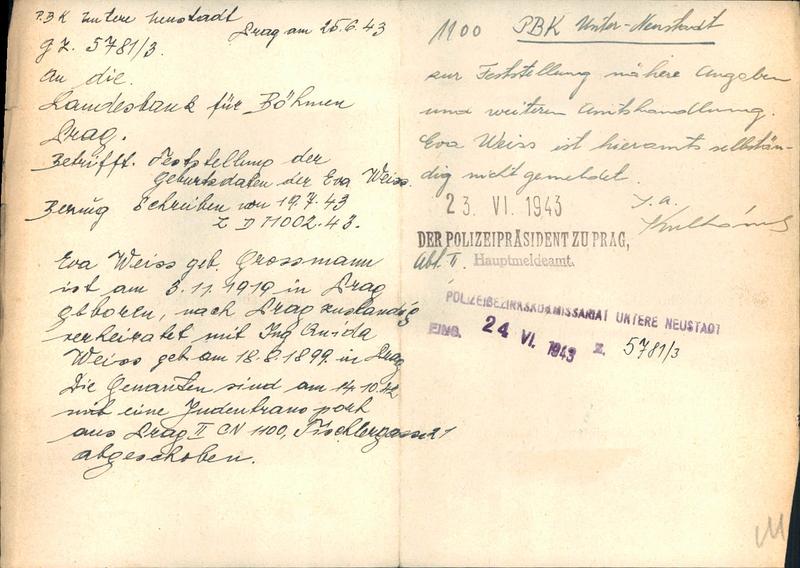 P.B.K Untere Neustadt
Prag am 25.6.43
g z. 5781/3.
An die.
Landesbank für Böhmen
Prag.
Betrifft. Feststellung der
Geburtsdaten der Eva Weiss.
Bezug Schreiben von 19.7.43
Z D 71002.43.
Eva Weiss geb. Grossmann
ist am 3.11.1919 in Prag
geboren, nach Prag zuständig
verheiratet mit Ing
Weiss geb am 18.8.1899 in Prag
Die Genanten sind am 14.10.42
mit eine Judentransport
aus Prag II CN 1100, Tischlergasse 21
abgeschoben.
1100 PBK Unter-Neustadt
zur Feststellung nähere Angaben
und weiteren Amtshandlung.
Eva Weiss ist hieramts selbstän-
dig nicht gemeldet.
23. VI. 1943
I.A.
DER POLIZEIPRÄSIDENT ZU PRAG,
Abt. II. Hauptmeldeamt.
POLIZEIBEZIRKSKOMMISSARIAT UNTERE NEUSTADT
EING. 24 VI. 1943 Z. 5781/3